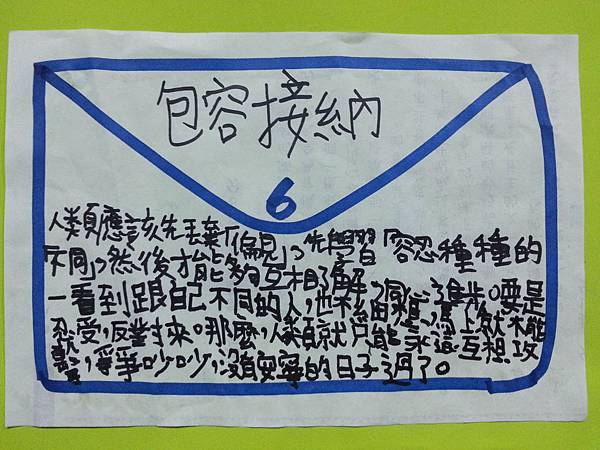 包容接納
6
人類應該先丟棄「偏見」，先學習「容忍種種的
不同」，然後才能夠互相了解，同心進步。要是
一看到跟自己不同的人，也不細想，馬上就不能
忍受，反對來。那麼，人類就只能永遠互相攻
擊，爭爭吵吵，沒有安寧的日子過了。